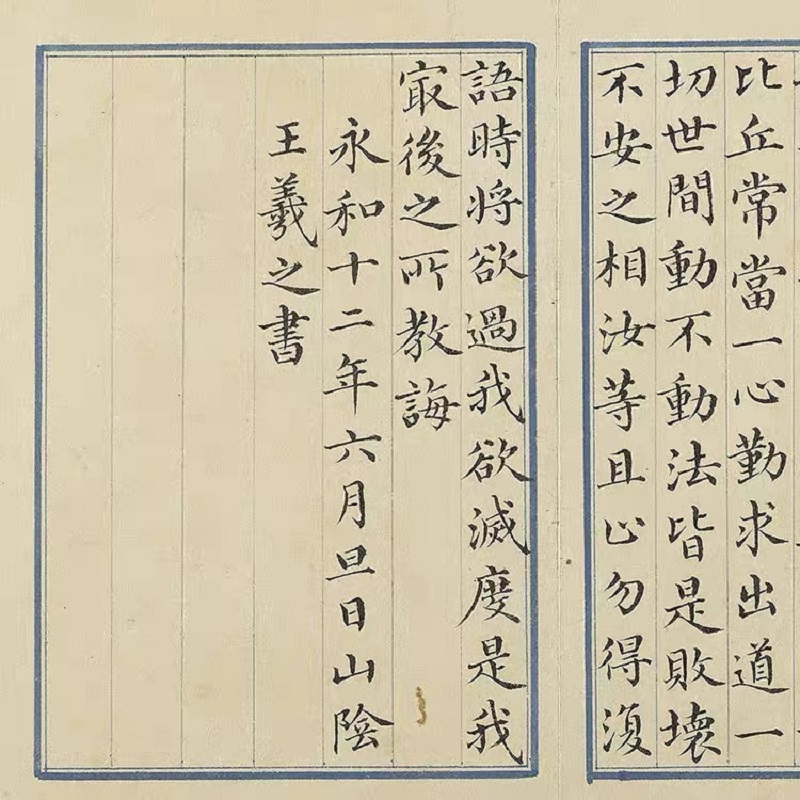 比丘常當一心勤求出道一
切世間動不動法皆是敗壞
不安之相汝等且止勿得復
語時将欲過我欲滅度是我
㝡後之所教誨
永和十二年六月旦日山陰
王羲之書